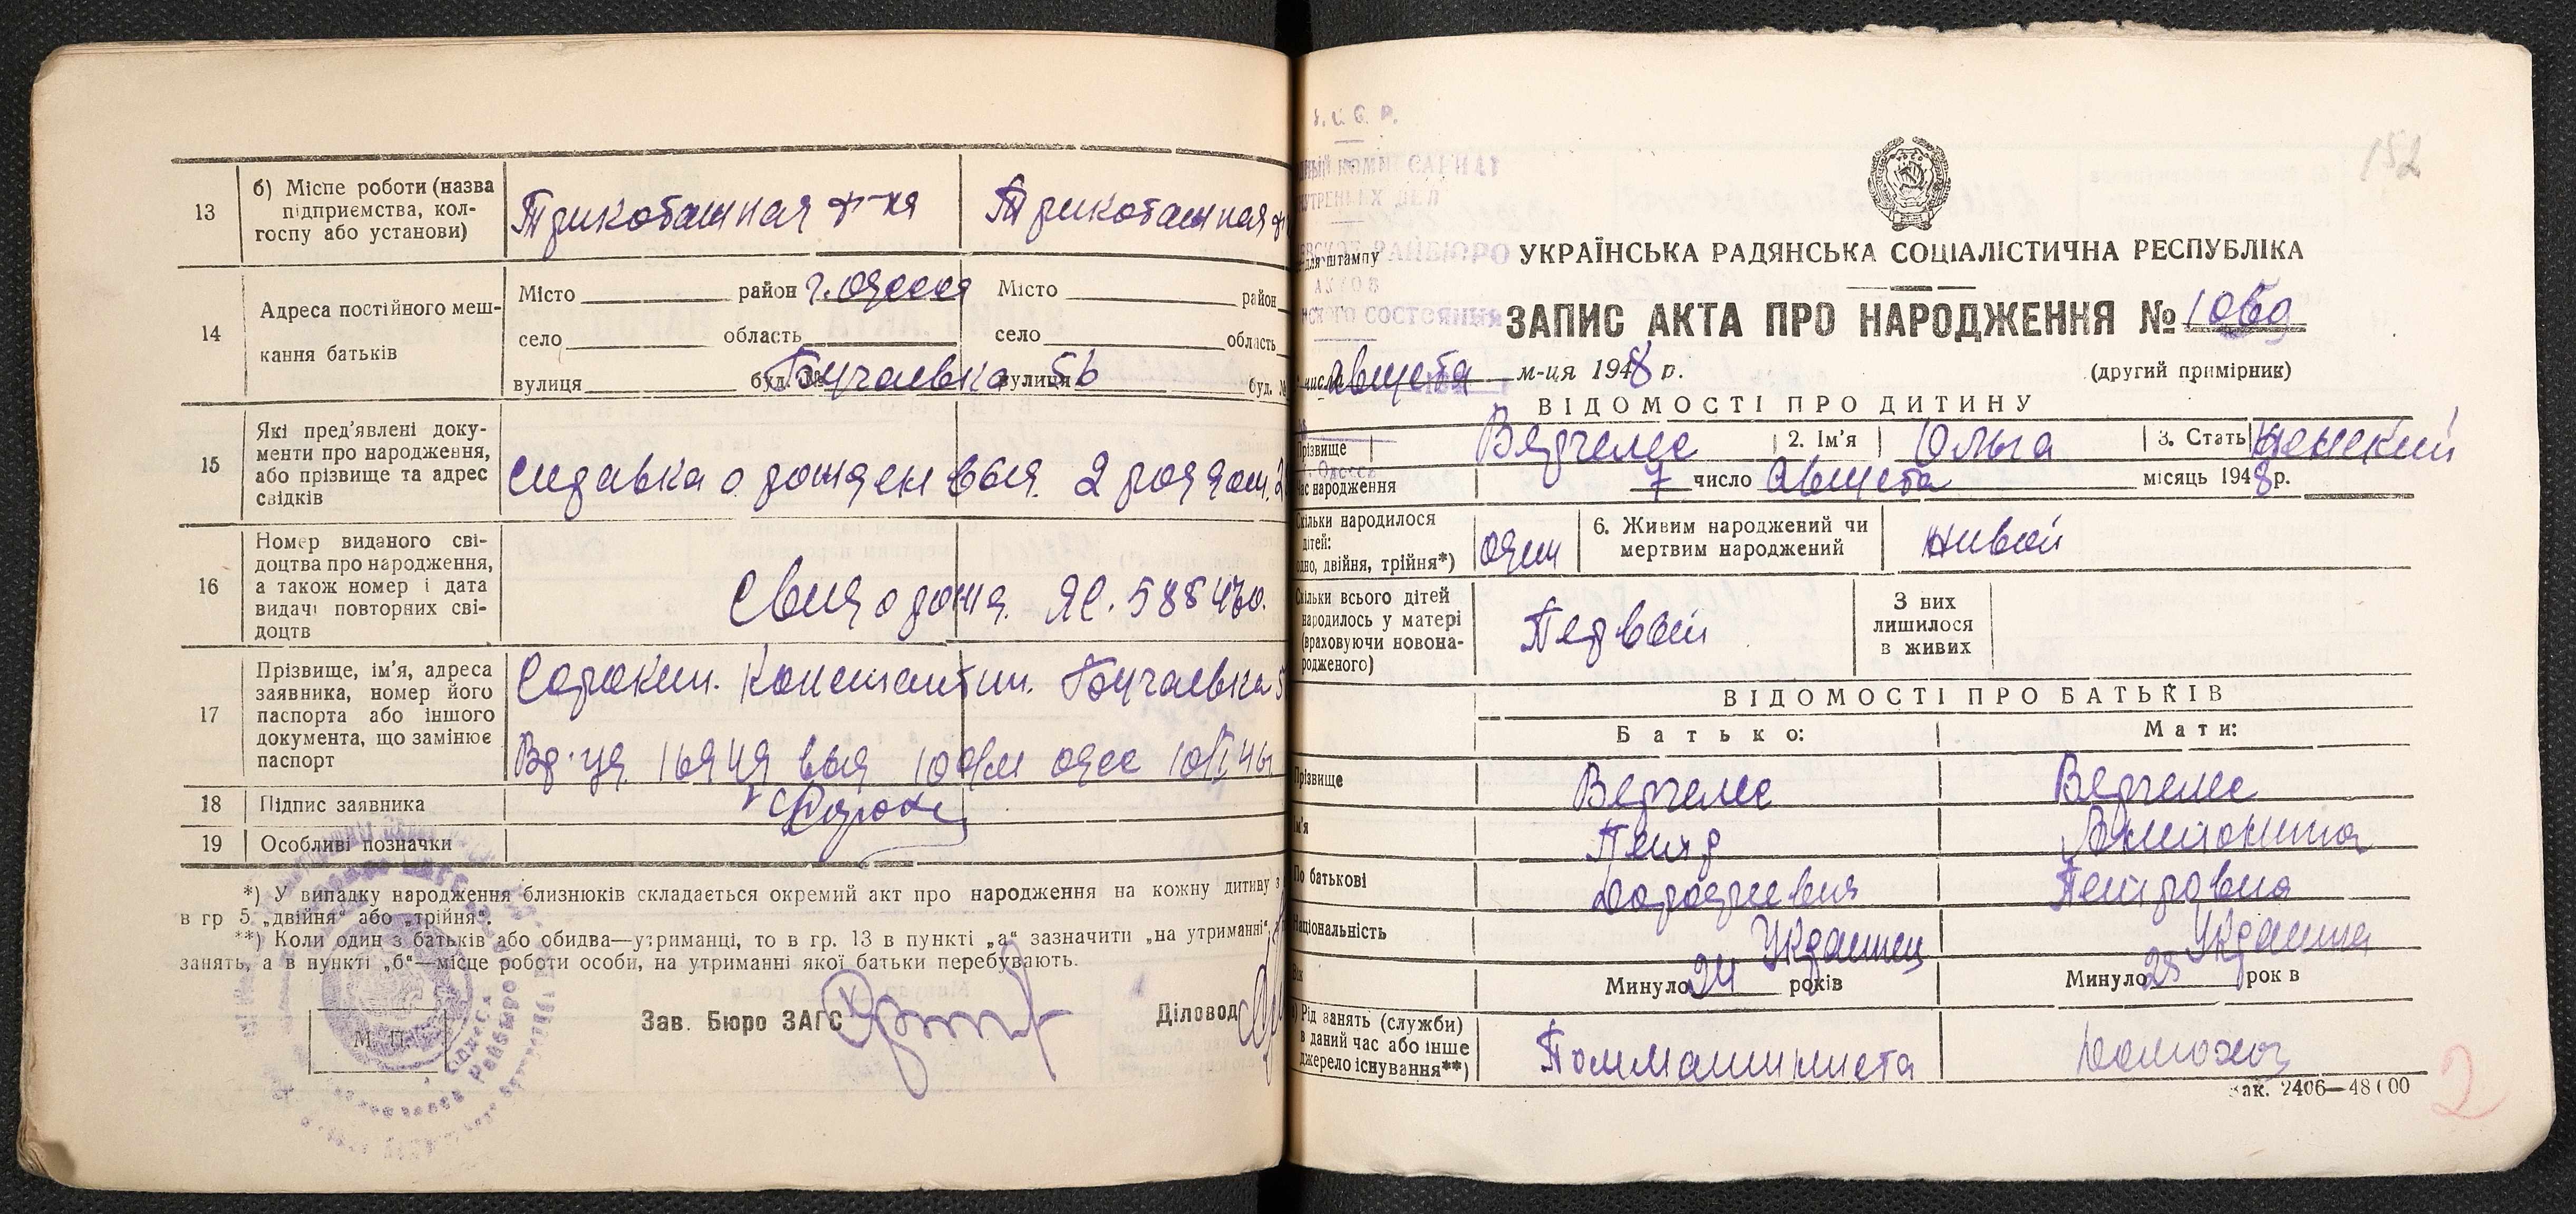 13
б) Місце роботи (назва
підприємства, кол-
госпу або установи)
Трикотажная ф-ка
Трикотажная
14
Адреса постійного меш-
кання батьків
Місто район г. Одесса
село область
вулиця буд. № Бугаевка 56
Місто район
село область
вулиця буд. №
15
Які пред'явлені доку-
менти про народження,
або прізвище та адрес
свідків
справка о рожден выд. 2 роддом.
16
Номер виданого сві-
доцтва про народження,
а також номер і дата
видачі повторних сві-
доцтв
Свид о рожд. ЯС.
17
Прізвище, ім'я, адреса
заявника, номер його
паспорта або іншого
документа, що замінює
паспорт
Сорокин. Константин. Бугаевка
выд 10 о/м одес
18
Підпис заявника
19
Особливі позначки
*) У випадку народження близнюків складається окремий акт про народження на кожну дитину з
в гр 5 „двійня“ або „трійня“.
**) Коли один з батьків або обидва—утриманці, то в гр. 13 в пункті „а“ зазначити „на утриманні“,
занять, а в пункті „б“—місце роботи особи, на утриманні якої батьки перебувають.
М. П.
Зав. Бюро ЗАГС
Діловод
152
для штампу
УКРАЇНСЬКА РАДЯНСЬКА СОЦІАЛІСТИЧНА РЕСПУБЛІКА
ЗАПИС АКТА ПРО НАРОДЖЕННЯ №
числа августа м-ця 1948 р.
(другий примірник)
ВІДОМОСТІ ПРО ДИТИНУ
Прізвище Вергелес 2. Ім'я Ольга 3. Стать женский
Час народження 7 число Августа місяць 1948 р.
Скільки народилося
дітей:
одно, двійня, трійня*)
один
6. Живим народжений чи
мертвим народжений
живой
Скільки всього дітей
народилось у матері
(враховуючи новона-
родженого)
Первый
З них
лишилося
в живих
ВІДОМОСТІ ПРО БАТЬКІВ
Батько: Мати:
Прізвище Вергелес Вергелес
Ім'я Петр Антонина
По батькові Петровна
Національність Украинец Украинка
Вік Минуло 24 років Минуло років
Рід занять (служби)
в даний час або інше
джерело існування**)
Поммашиниста
домохоз
Зак. 2406—48000
2